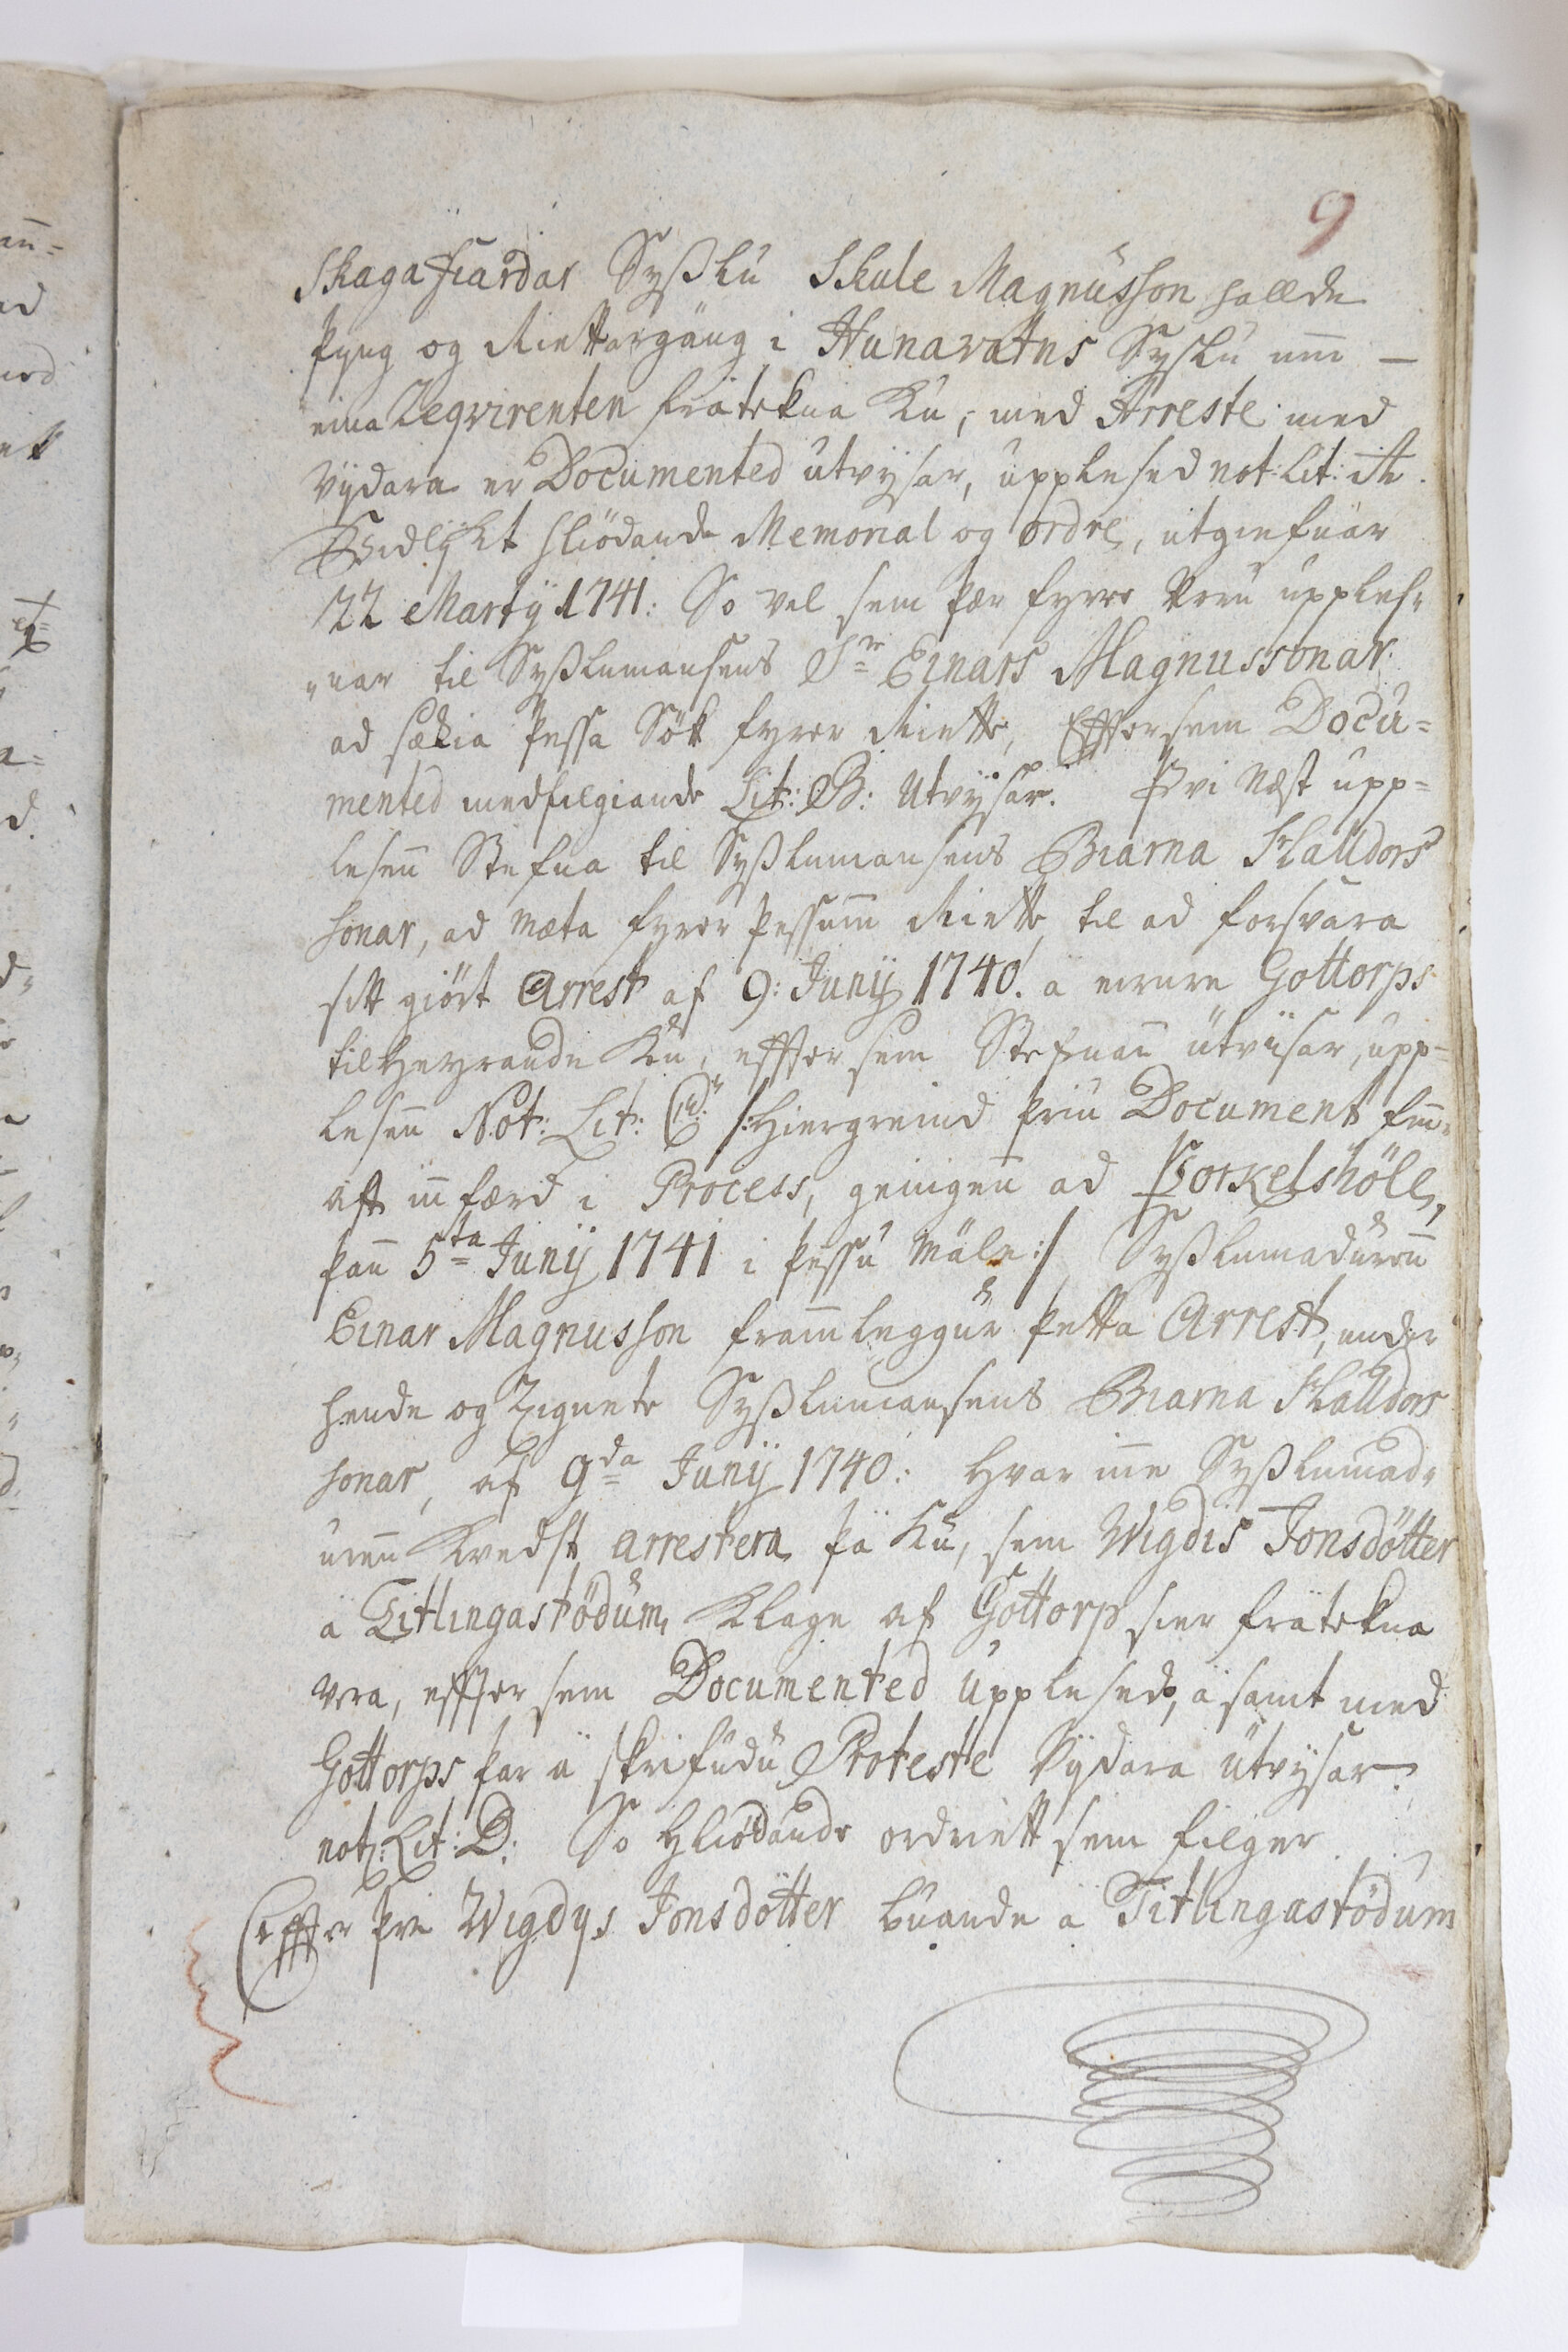 9
Skagafiardar Syßlu Skule Magnusson hallde
Þyng og Riettargäng i Hunavatns Syslu umm —
eina Reqvirenten fratekna Kú, med Arreste med
vÿdara er Documented utvÿsar, upplesed not: Lit: A.
Þvilÿkt hliödande Memorial og ordre, utgiefuär
22 Martÿ 1741: So vel sem þær fyrre Veru upples„
„nar til Syßlumansens Sr Einars Magnussonar
ad sækia Þessa Sök fyrer Riette, Effter sem Docu=
mented medfilgiande Lit: B: Utvÿsar. Þvi Næst upp=
lesenn Stefna til Syßlumansens Biarna Halldors
sonar, ad mæta fyrer þessumm Riette, til ad forsvara
sitt giört Arrest af 9: Junÿ 1740. ä einre Gottorps
tilheyrande Kú, effter sem Stefnan ütvisar, upp=
lesenn Not: Lit: C. /: Hiergreind þriu Document
aff innfærd i Process, geingenn ad Þorkelshöle,
þann 5ta Junÿ 1741 i þessu mäle :/ Syßlumadurenn
Einar Magnusson frammleggur þetta Arrest, under
hende og Zignete Syßlumansens Biarna Halldors
sonar, af 9da Junÿ 1740: Hvar inne Syßlumad„
urenn Kvedst arrestera þä Kú, sem Wigdis Jonsdötter
ä Titlingastödum, klage af Gottorp sier fratekna
vera, effter sem Documented upplesed, äsamt med
Gottorps þar ä skrifudu Proteste Vÿdara ütvÿsar.
not: Lit: D: So Hliödande ordriett sem filger
Effter þvi Wigdys Jonsdötter buande ä Titlingastödum